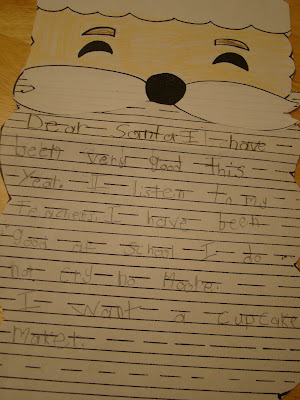 Dear Santa I have
been very good this
Year. I listen to my
Teachers. I have been
good at school I do
not cry no Moore.
I want a cupcake
Maker.